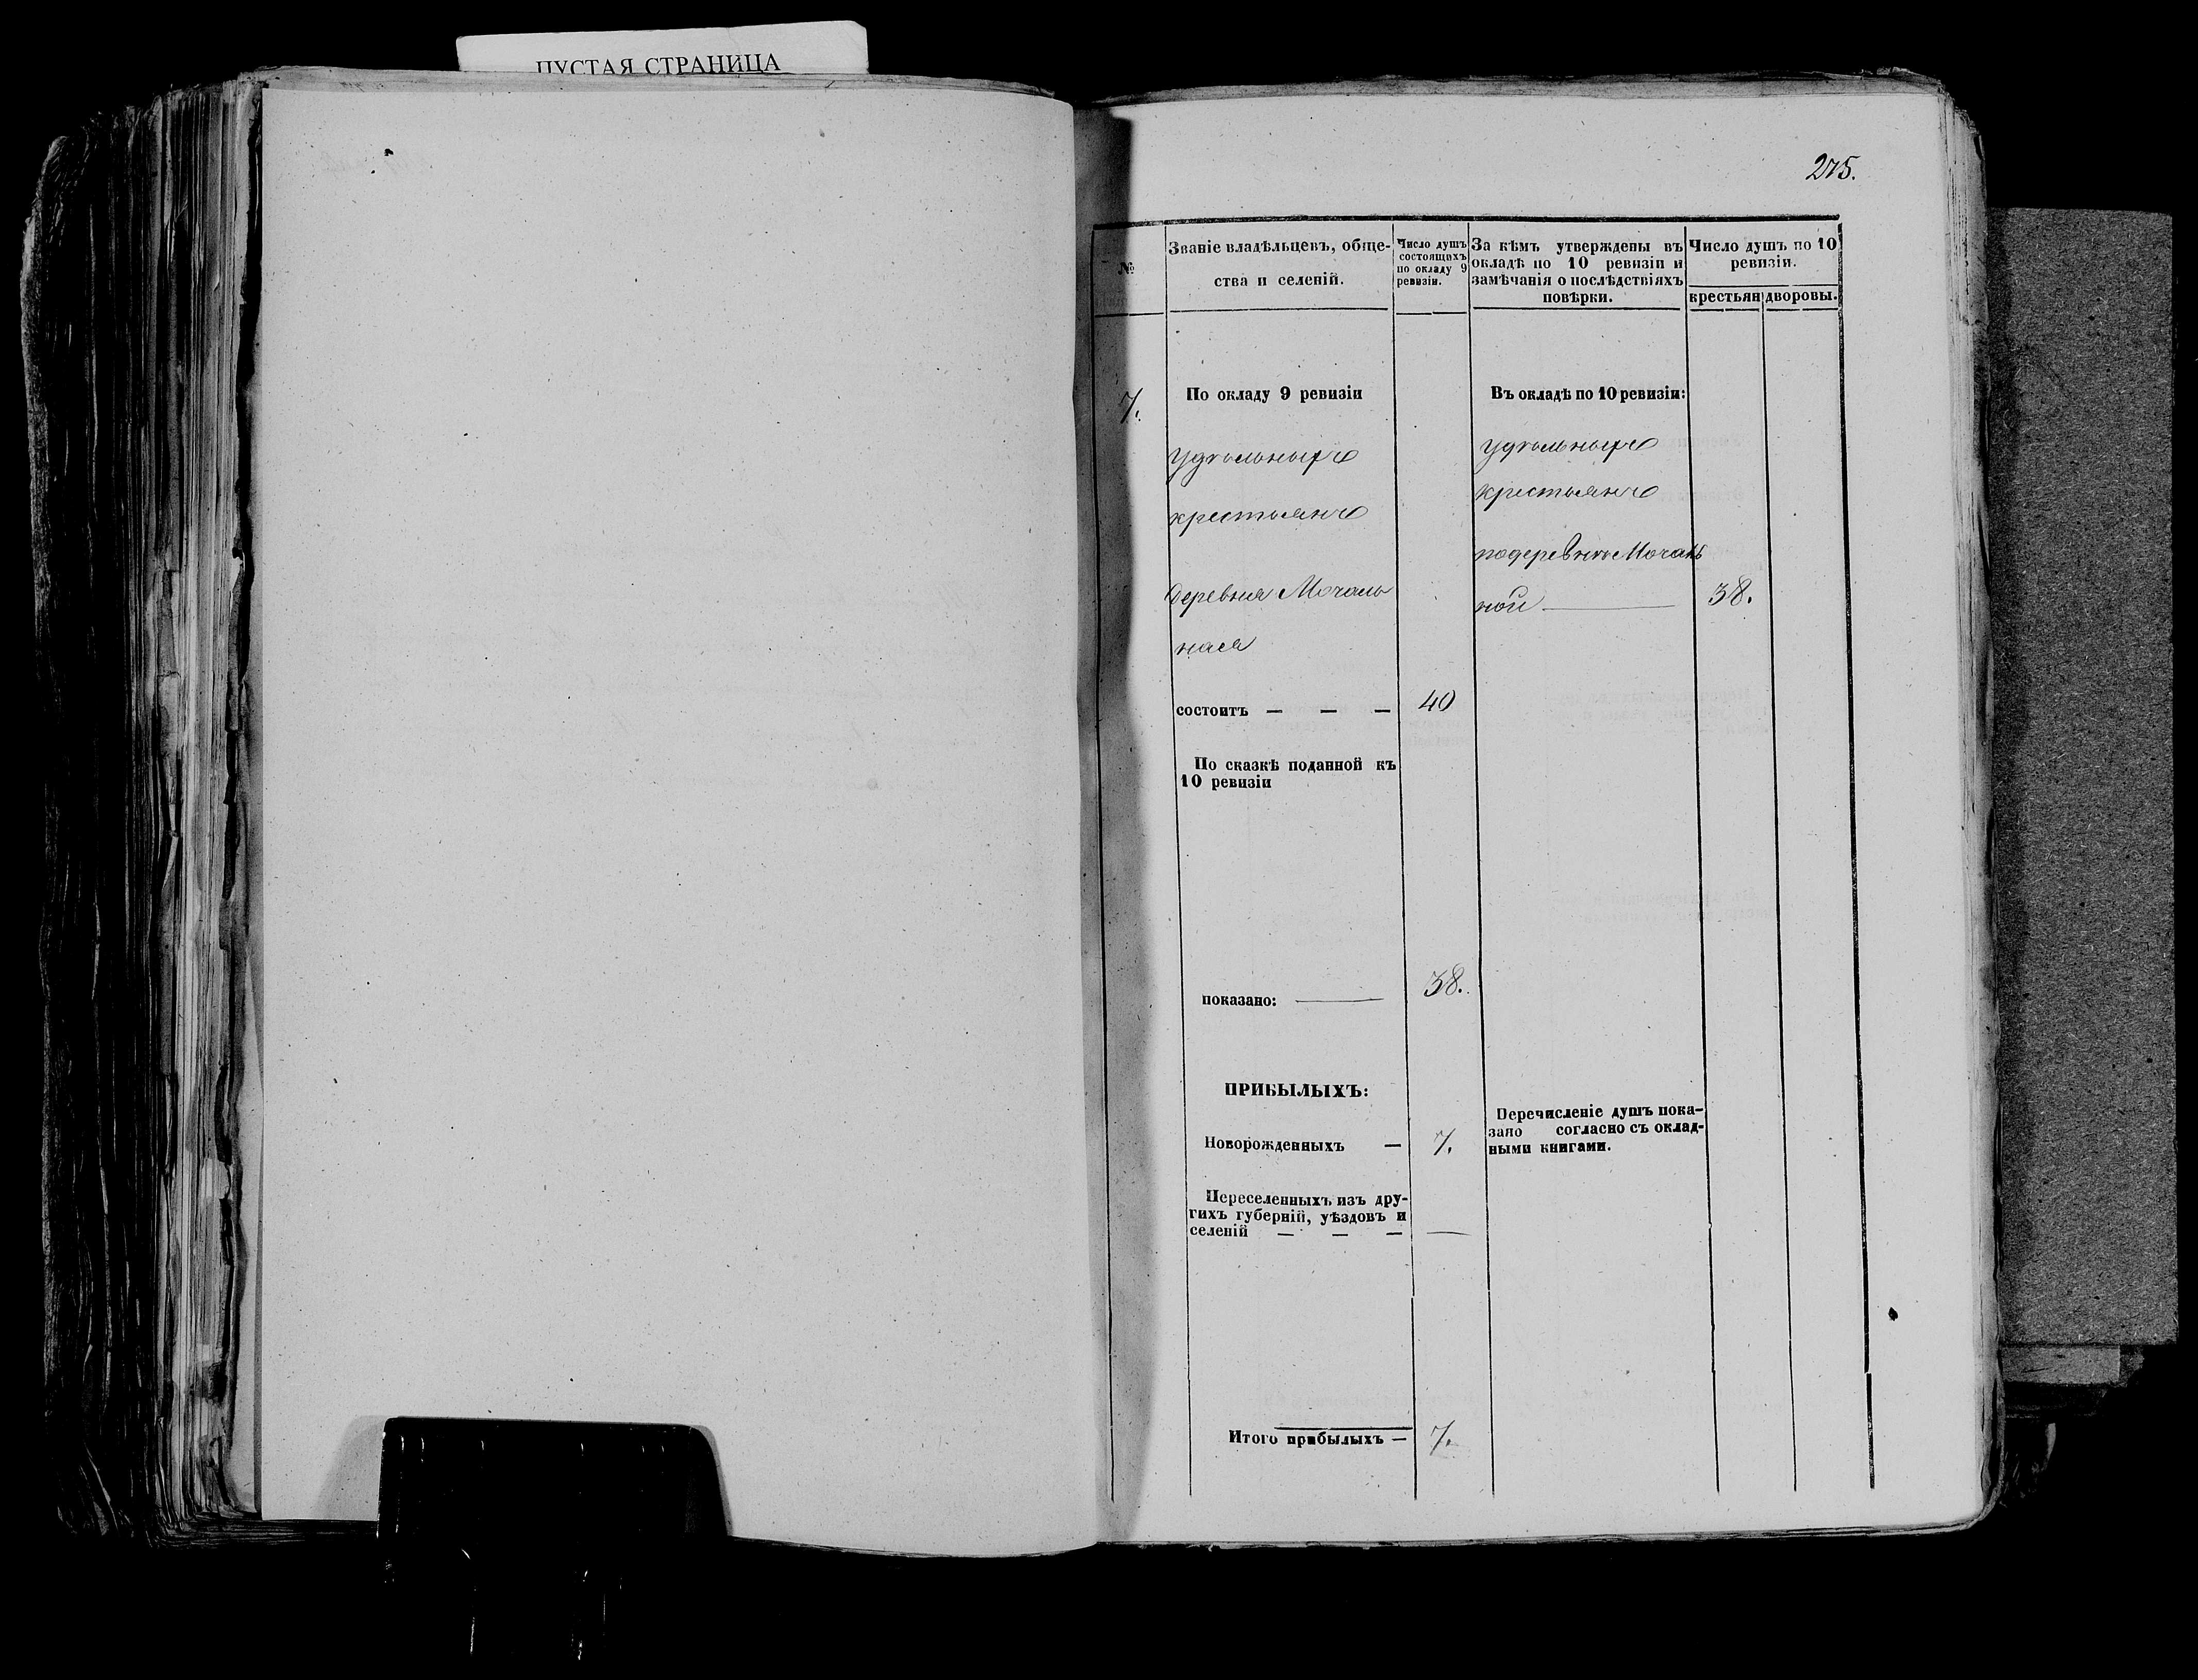 ПУСТАЯ СТРАНИЦА
275.
№
Званіе владѣльцевъ, обще-
ства и селеній.
Число душъ
состоящихъ
по окладу 9
ревизіи.
За кѣмъ утверждены въ
окладѣ по 10 ревизіи и
замѣчанія о послѣдствіяхъ
повѣрки.
Число душъ по 10
ревизіи.
крестьян
дворовы.
7.
По окладу 9 ревизіи
удѣльныхъ
крестьянъ
деревня Мочаль
ная
состоитъ — — —
40
По сказкѣ поданной къ
10 ревизіи
показано: —
38.
ПРИБЫЛЫХЪ:
Новорожденныхъ —
7.
Переселенныхъ изъ дру-
гихъ губерній, уѣздовъ и
селеній — — —
—
Итого прибылыхъ —
7.
Въ окладѣ по 10 ревизіи:
удѣльныхъ
крестьянъ
подеревнѣ Мочаль
ной —
38.
Перечисленіе душъ пока-
зано согласно съ оклад-
ными книгами.